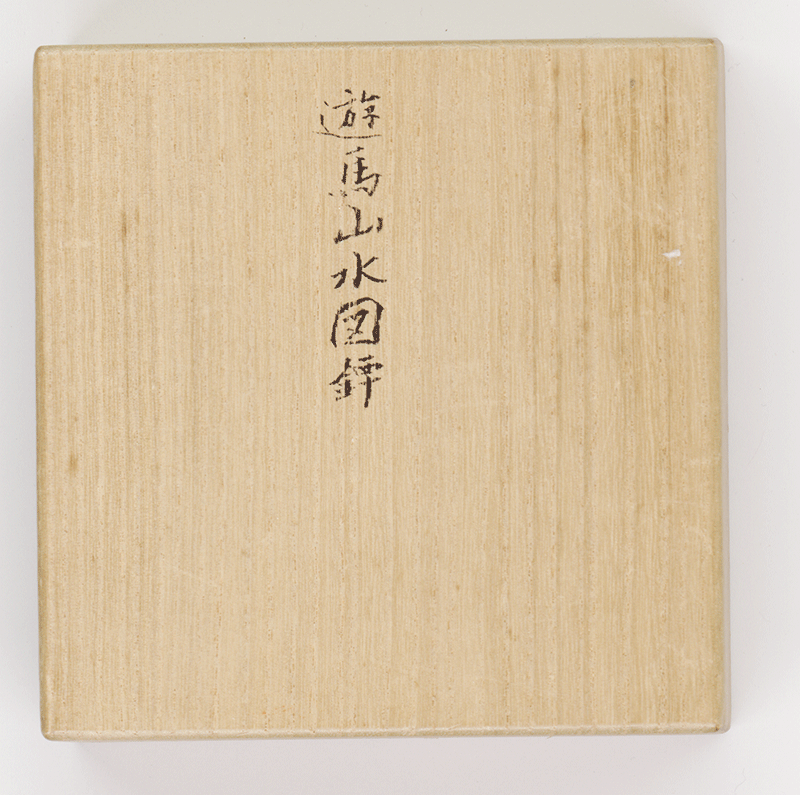 遊馬山水図鐔